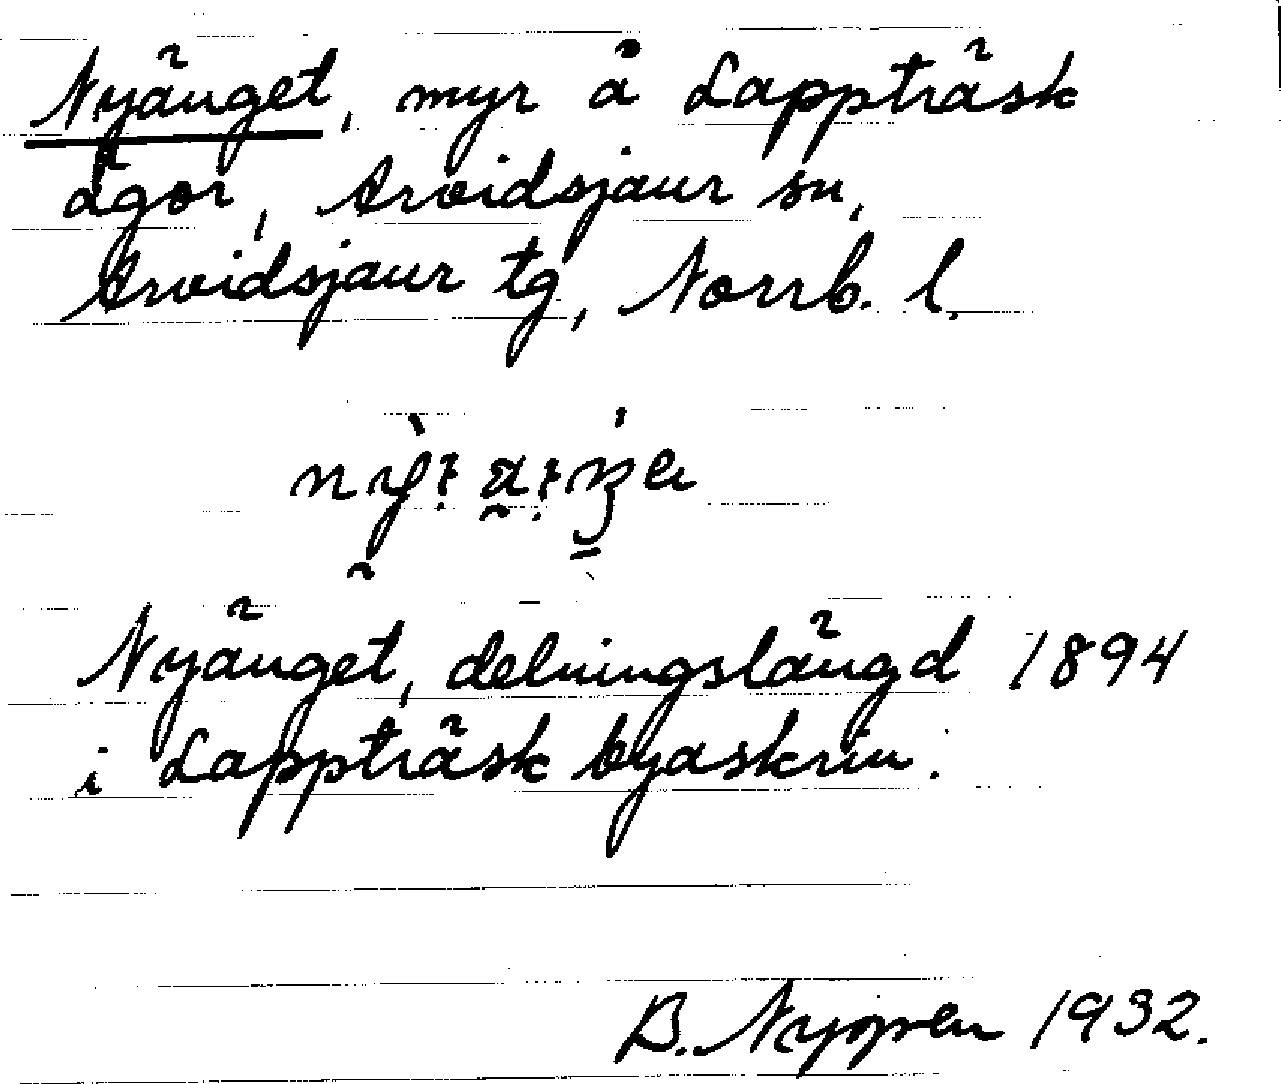 Nyänget, myr å Lappträsk
ägor, Arvidsjaur sn,
Arvidsjaur tg, Norrb. l.
Nyänget, delningslängd 1894
i Lappträsk byaskrin.
B. 1932.